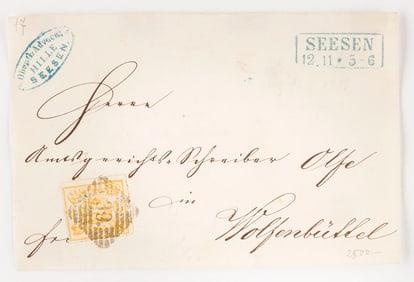 17
Oberg.-Advocat
HILLE
SEESEN.
SEESEN
12.11 * 5-6
Herrn
Amtsgerichts-Schreiber Olfe
in
Wolfenbüttel
frei
39
2500.—